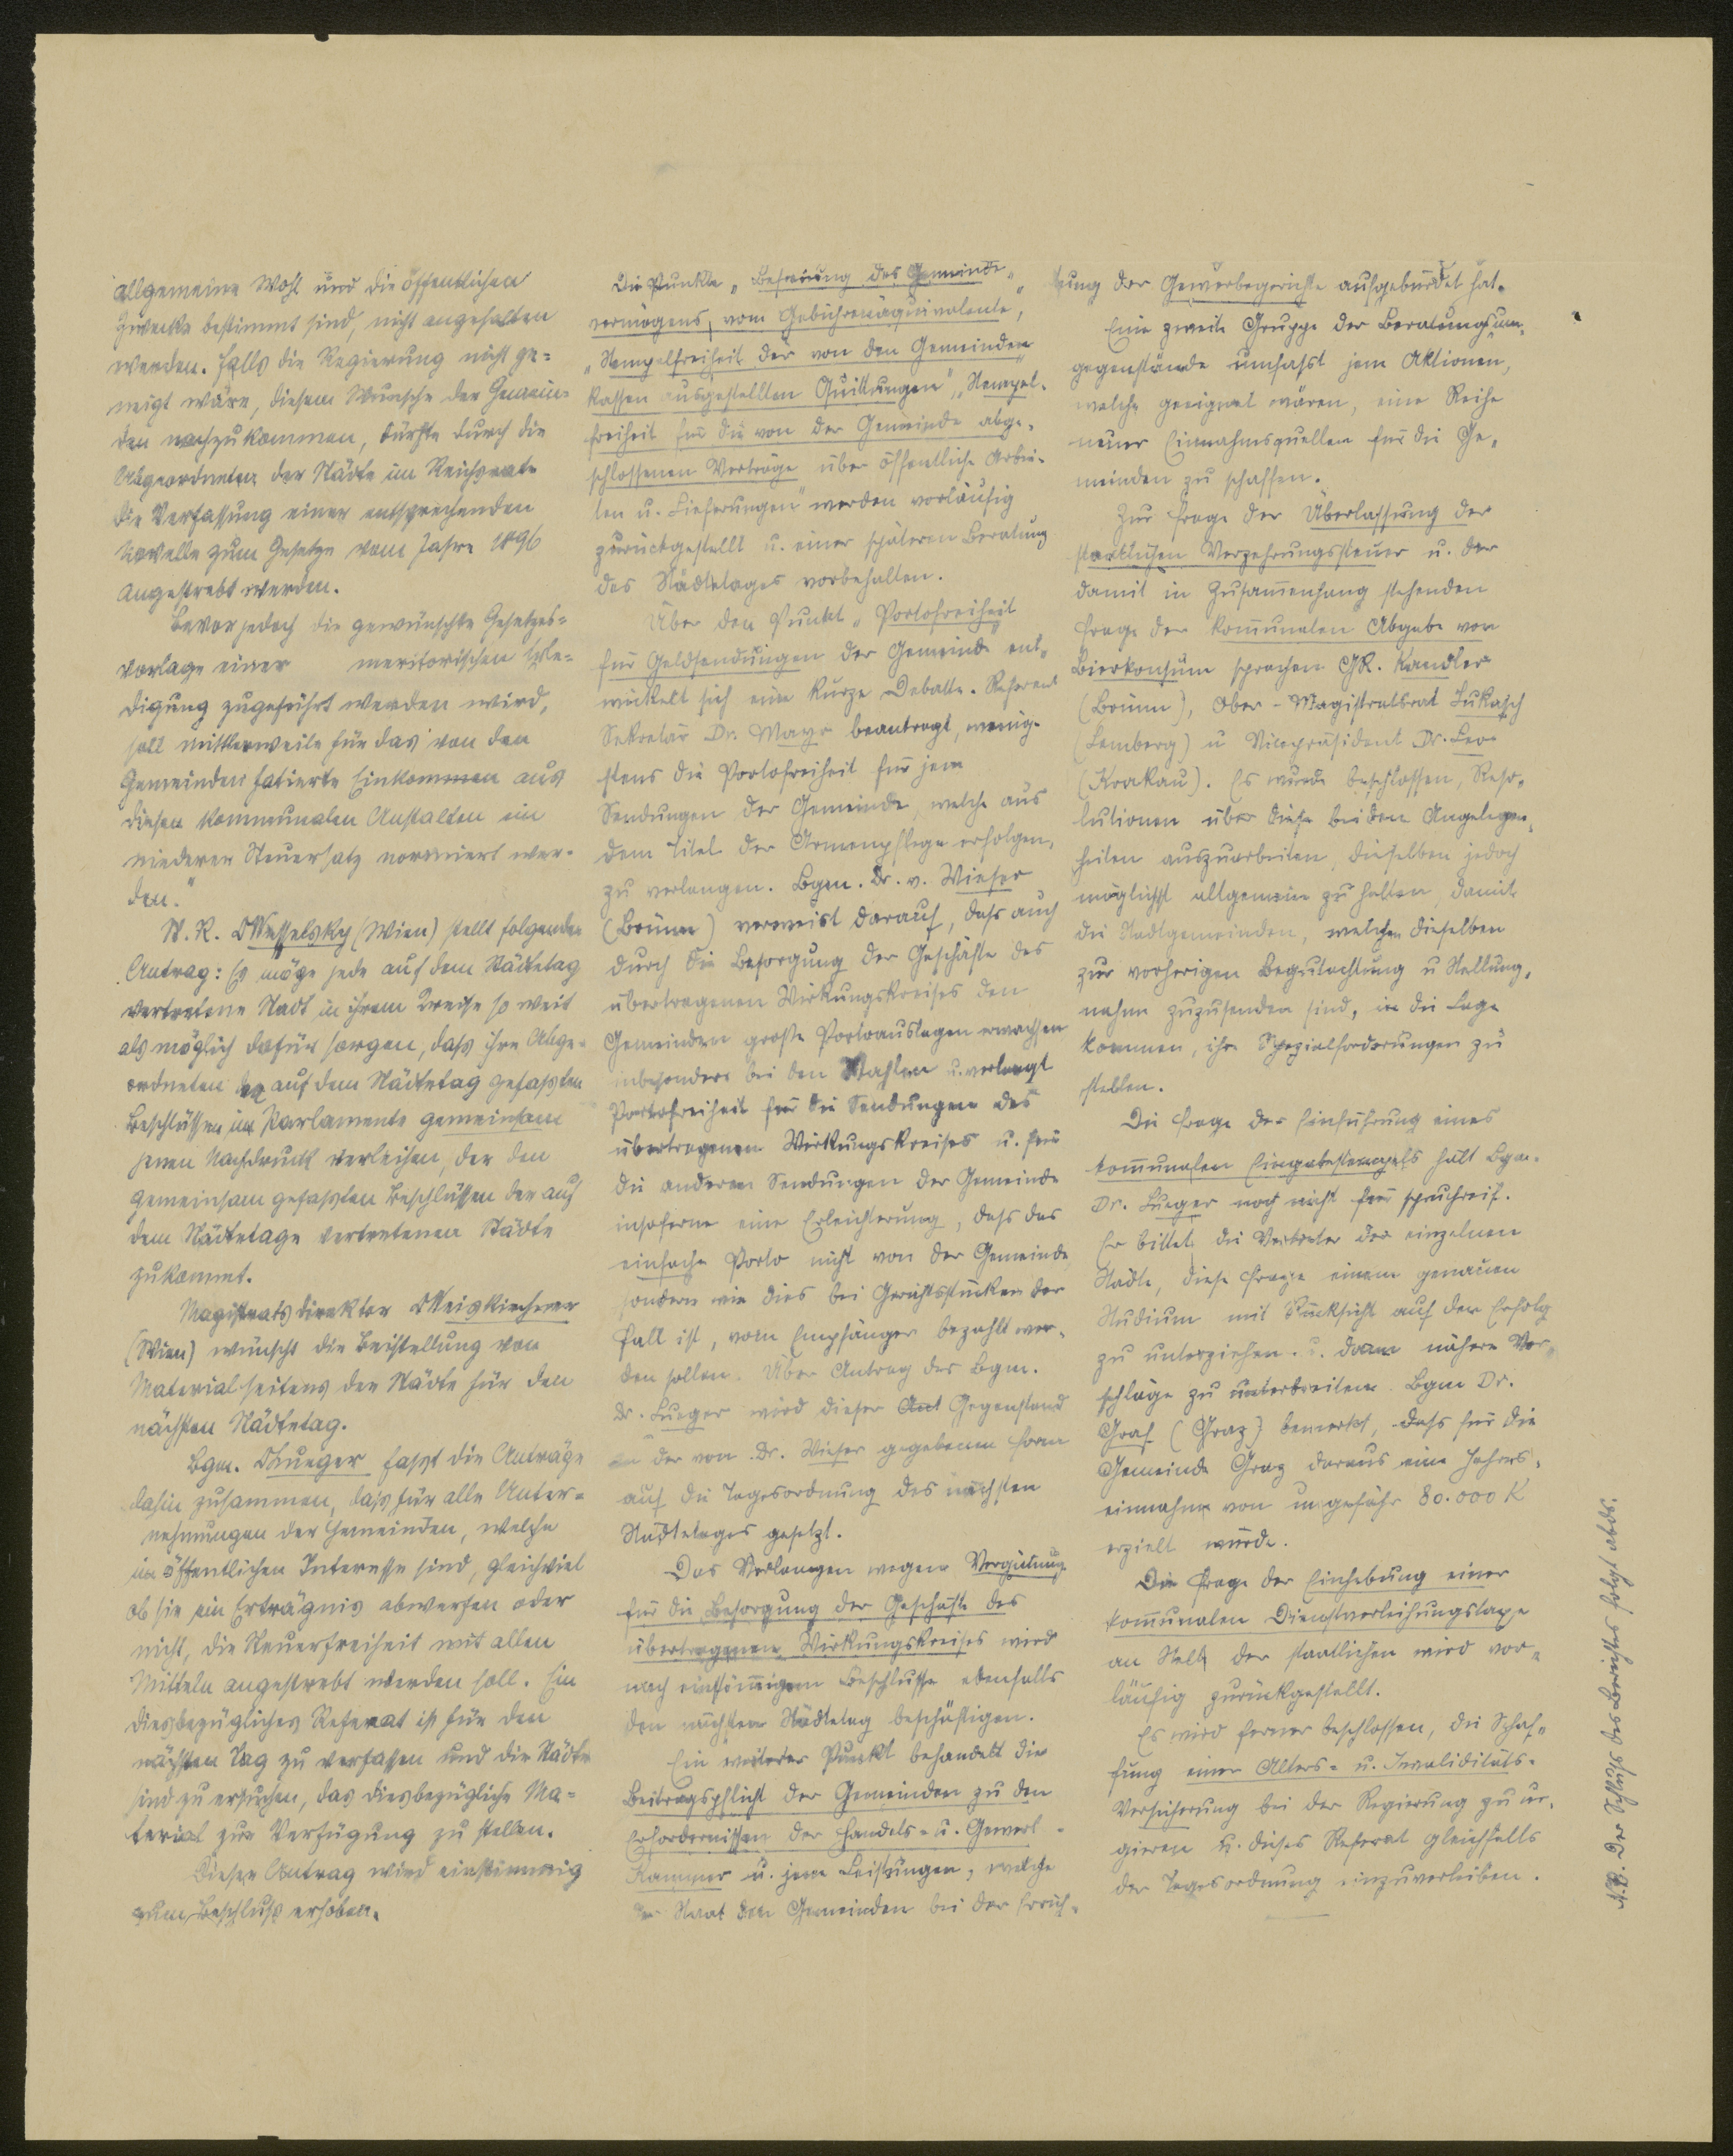 allgemeine Wohl und die öffentlichen
Zwecke bestimmt sind, nicht angehalten
werden. Falls die Regierung nicht ge=
neigt wäre, diesem Wunsche der Gemein=
den nachzukommen, dürfte durch die
Abgeordneten der Städte im Reichsrate
die Verfassung einer entsprechenden
Novelle zum Gesetze vom Jahre 1896
angestrebt werden.
Bevor jedoch die gewünschte Gesetzes=
vorlage einer meritorischen Erle=
digung zugeführt werden wird,
soll mittlerweile für das von den
Gemeinden fatierte Einkommen aus
diesen kommunalen Anstalten ein
niederer Steuersatz normiert wer-
den."
St. R. Wesselsky (Wien) stellt folgenden
Antrag: Es möge jede auf dem Städtetag
vertretene Stadt in ihrem Kreise so weit
als möglich dafür sorgen, daß ihre Abge=
ordneten den auf dem Städtetag gefaßten
Beschlüssen im Parlamente gemeinsam
jenen Nachdruck verleihen, der den
gemeinsam gefaßten Beschlüssen der auf
dem Städtetage vertretenen Städte
zukommt.
Magistratsdirektor Weiskirchner
(Wien) wünscht die Beistellung von
Material seitens der Städte für den
nächsten Städtetag.
Bgm. Lueger faßt die Anträge
dahin zusammen, daß für alle Unter=
nehmungen der Gemeinden, welche
im öffentlichen Interesse sind, gleichviel
ob sie ein Erträgnis abwerfen oder
nicht, die Steuerfreiheit mit allen
Mitteln angestrebt werden soll. Ein
diesbezügliches Referat ist für den
nächsten Tag zu verfassen und die Städte
sind zu ersuchen, das diesbezügliche Ma=
terial zur Verfügung zu stellen.
Dieser Antrag wird einstimmig
zum Beschluß erhoben.
Die Punkte „Befreiung des Gemeinde-
vermögens vom Gebührenäquivalente",
„Stempelfreiheit der von den Gemeinden
Kassen ausgestellten Quittungen", „Stempel-
freiheit für die von der Gemeinde abge-
schlossenen Verträge über öffentliche Arbei-
ten u. Lieferungen" werden vorläufig
zurückgestellt u. einer späteren Beratung
des Städtetages vorbehalten.
Über den Punkt „Portofreiheit
für Geldsendungen der Gemeinde" ent-
wickelt sich eine kurze Debatte. Referent
Sekretär Dr. Mayr beantragt, wenig-
stens die Portofreiheit für jene
Sendungen der Gemeinde, welche aus
dem Titel der Armenpflege erfolgen,
zu verlangen. Bgm. Dr. v. Wieser
(Brünn) verweist darauf, dass auch
durch die Besorgung der Geschäfte des
übertragenen Wirkungskreises den
Gemeinden große Portoauslagen erwachsen
inbesondere bei den Wahlen u. verlangt
Portofreiheit für die Sendungen des
übertragenen Wirkungskreises u. für
die anderen Sendungen der Gemeinde
insoferne eine Erleichterung, dass das
einfache Porto nicht von der Gemeinde
sondern wie dies bei Gerichtsstücken der
Fall ist, vom Empfänger bezahlt wer-
den sollen. Über Antrag des Bgm.
Dr. Lueger wird dieser Ant Gegenstand
in der von Dr. Wieser gegebenen Form
auf die Tagesordnung des nächsten
Städtetages gesetzt.
Das Verlangen wegen Vergütung
für die Besorgung der Geschäfte des
übertragenen Wirkungskreises wird
nach einstimmigem Beschlusse ebenfalls
den nächsten Städtetag beschäftigen.
Ein weiterer Punkt behandelt die
Beitragspflicht der Gemeinden zu den
Erfordernissen der Handels- u. Gewerbe-
Kammer u. jene Leistungen, welche
der Staat den Gemeinden bei der Errich-
tung der Gewerbegerichte aufgebürdet hat.
Eine zweite Gruppe der Beratungs-
gegenstände umfasst jene Aktionen,
welche geeignet wären, eine Reihe
neuer Einnahmsquellen für die Ge-
meinden zu schaffen.
Zur Frage der Überlassung der
staatlichen Verzehrungssteuer u. der
damit in Zusammenhang stehenden
Frage der kommunalen Abgabe vom
Bierkonsum sprachen GR. Kandler
(Brünn), Ober-Magistratsrat Lukasch
(Lemberg) u Vicepräsident Dr. Leo
(Krakau). Es wurde beschlossen, Reso-
lutionen über diese beiden Angelegen-
heiten auszuarbeiten, dieselben jedoch
möglichst allgemein zu halten, damit
die Stadtgemeinden, welchen dieselben
zur vorherigen Begutachtung u Stellung-
nahme zuzusenden sind, in die Lage
kommen, ihre Spezialforderungen zu
stellen.
Die Frage der Einführung eines
kommunalen Eingabestempels hält Bgm.
Dr. Lueger noch nicht für spruchreif.
Er bittet die Vertreter der einzelnen
Städte, diese Frage einem genauen
Studium mit Rücksicht auf den Erfolg
zu unterziehen u. dann nähere Vor-
schläge zu unterbreiten. Bgm Dr.
Graf (Graz) bemerkt, dass für die
Gemeinde Graz daraus eine Jahres-
einnahme von ungefähr 80.000 K
erzielt würde.
Die Frage der Einhebung einer
kommunalen Dienstverleihungstaxe
an Stelle der staatlichen wird vor-
läufig zurückgestellt.
Es wird ferner beschlossen, die Schaf-
fung einer Alters- u. Invaliditäts-
Versicherung bei der Regierung zu ur-
gieren u. dieses Referat gleichfalls
der Tagesordnung einzuverleiben.
N.B. Der Schluß des Berichtes folgt abds.